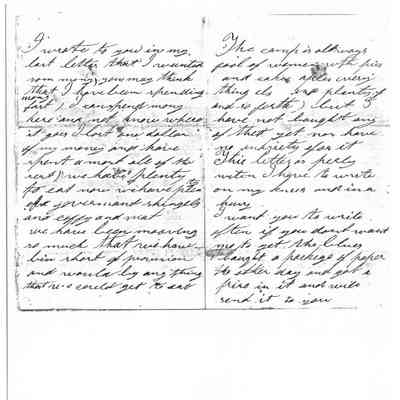 I wrote to you in my
last letter that I wanted
som myny, you may think
that I have been spending
mony
fast, I can spend mony
here and not know where
it goes I lost one dollar
of my money and have
spent amost all of the
rest, we had plenty
to eat now we have
of goverment shingels
and coffy and meat
we have been mooving
so much that we have
bin short of provision
and would by any thing
that we could get to eat
The camp is allways
fool of women with pies
and cakes apples every
thing els and plenty of
and so forth, but I
have not baught any
of thett yet nor have
no anxiety for it
This letter is poorly
riten I have to write
on my knees and in a
hury
I want you to write
often if you dont want
me to get the blues
I baught a package of paper
the other day and got a
in it and will
send it to you